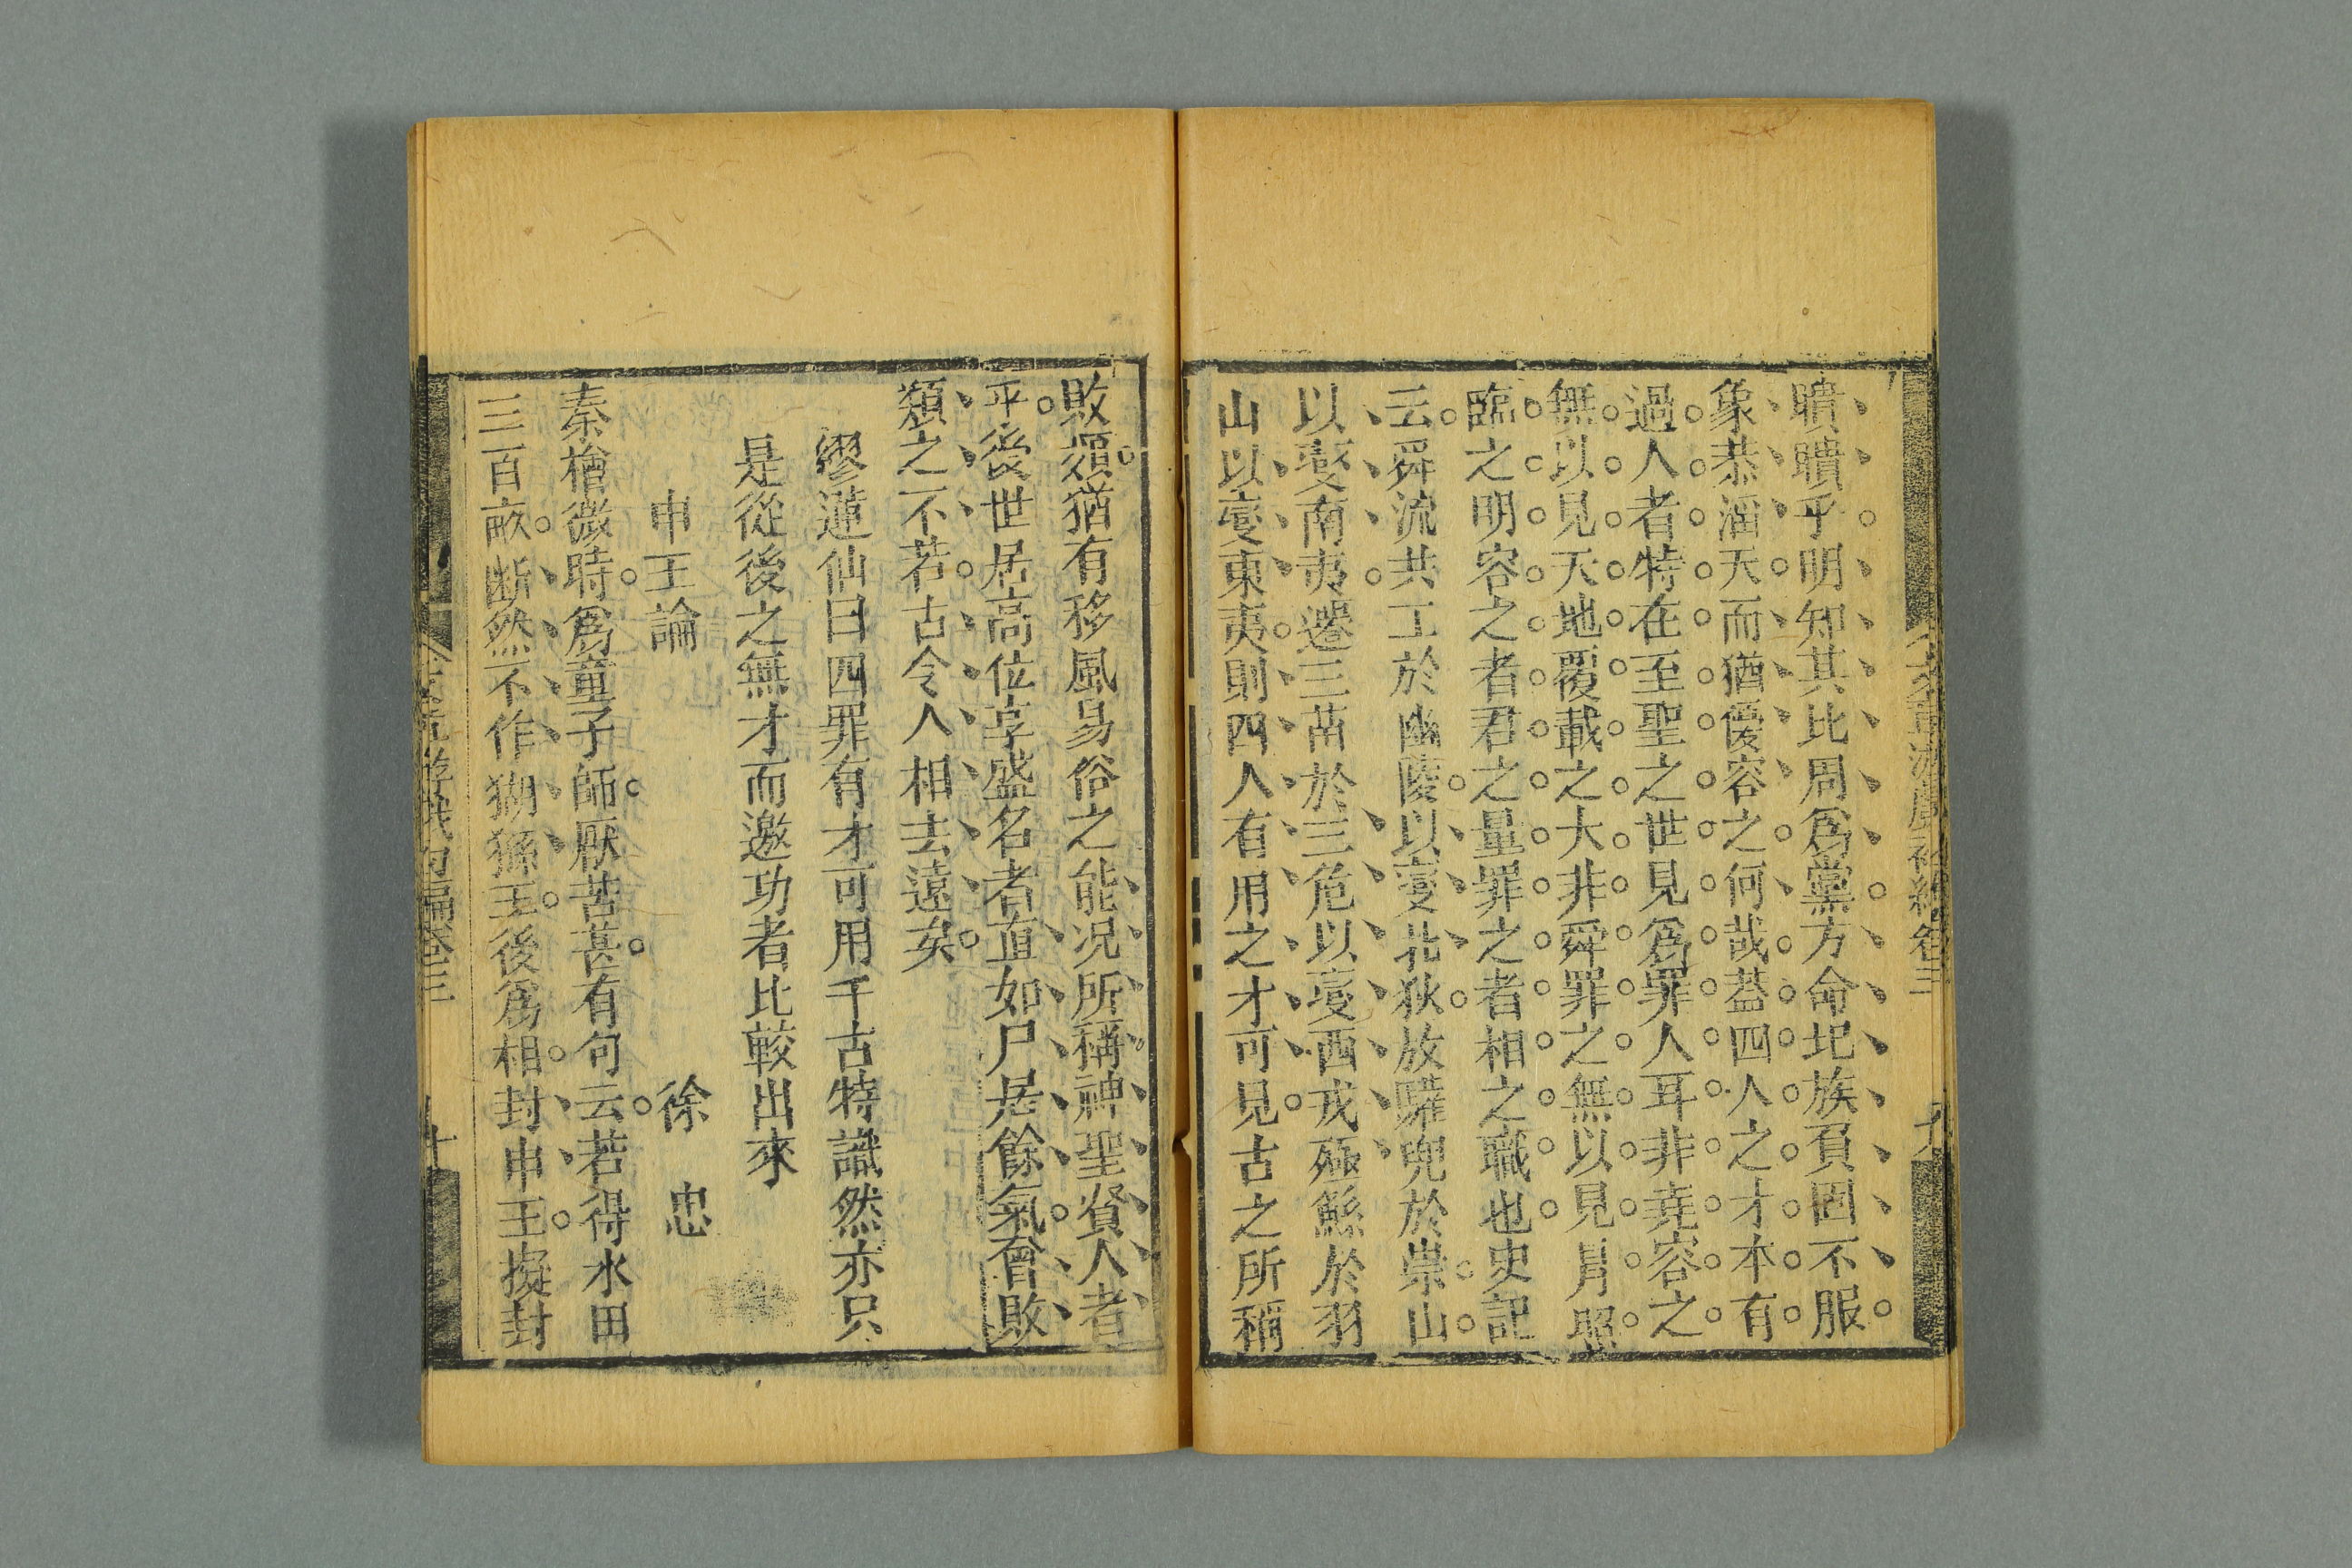 聵聵乎明知其比周爲黨方命圯族負固不服
象恭滔天而猶優容之何哉葢四人之才本有
過人者特在至聖之世見爲罪人耳非堯容之
無以見天地覆載之大非舜罪之無以見日月照
臨之明容之者君之量罪之者相之職也史記
云舜流共工於幽陵以變北狄放驩兜於崇山
以變南夷遷三苗於三危以變西戎殛鯀於羽
山以變東夷則四人有用之才可見古之所稱
敗類猶有移風易俗之能况所稱神聖賢人者
乎後世居高位享盛名者直如尸居餘氣會敗
類之不若古今人相去遠矣
繆蓮仙曰四罪有才可用千古特識然亦只
是從後之無才而邀功者比較出來
申王論
徐忠
秦檜微時爲童子師厭苦甚有句云若得水田
三百畝断然不作猢猻王後爲相封申王擬封